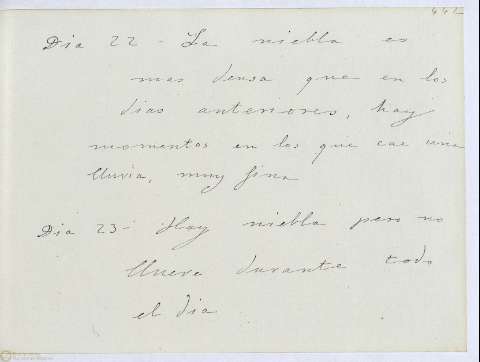 442
Dia 22 - La niebla es
mas densa que en los
dias anteriores, hay
momentos en los que cae una
lluvia, muy fina
Dia 23 - Hay niebla pero no
llueve durante todo
el dia